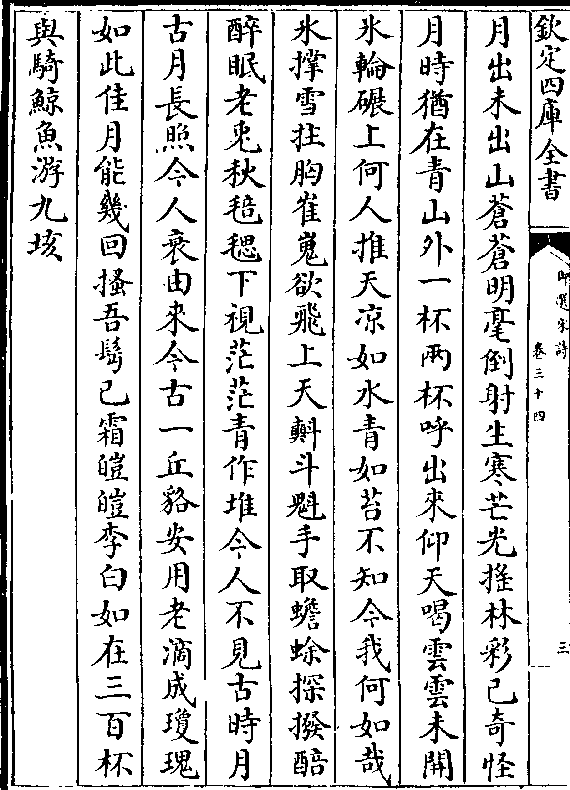 欽定四庫全書
御選宋詩
卷三十四
三
月出未出山蒼蒼明毫倒射生寒芒光搖林彩已奇怪
月時猶在青山外一杯兩杯呼出來仰天喝雲雲未開
氷輪碾上何人推天凉如水青如苔不知今我何如哉
氷撑雪拄胸崔嵬欲飛上天𣂏斗魁手取蟾蜍探撥醅
醉眠老兎秋毰毸下視茫茫青作堆今人不見古時月
古月長照今人衰由來今古一丘貉安用老滴成瓊瑰
如此佳月能幾回搔吾髩已霜皚皚李白如在三百杯
與騎鯨魚游九垓